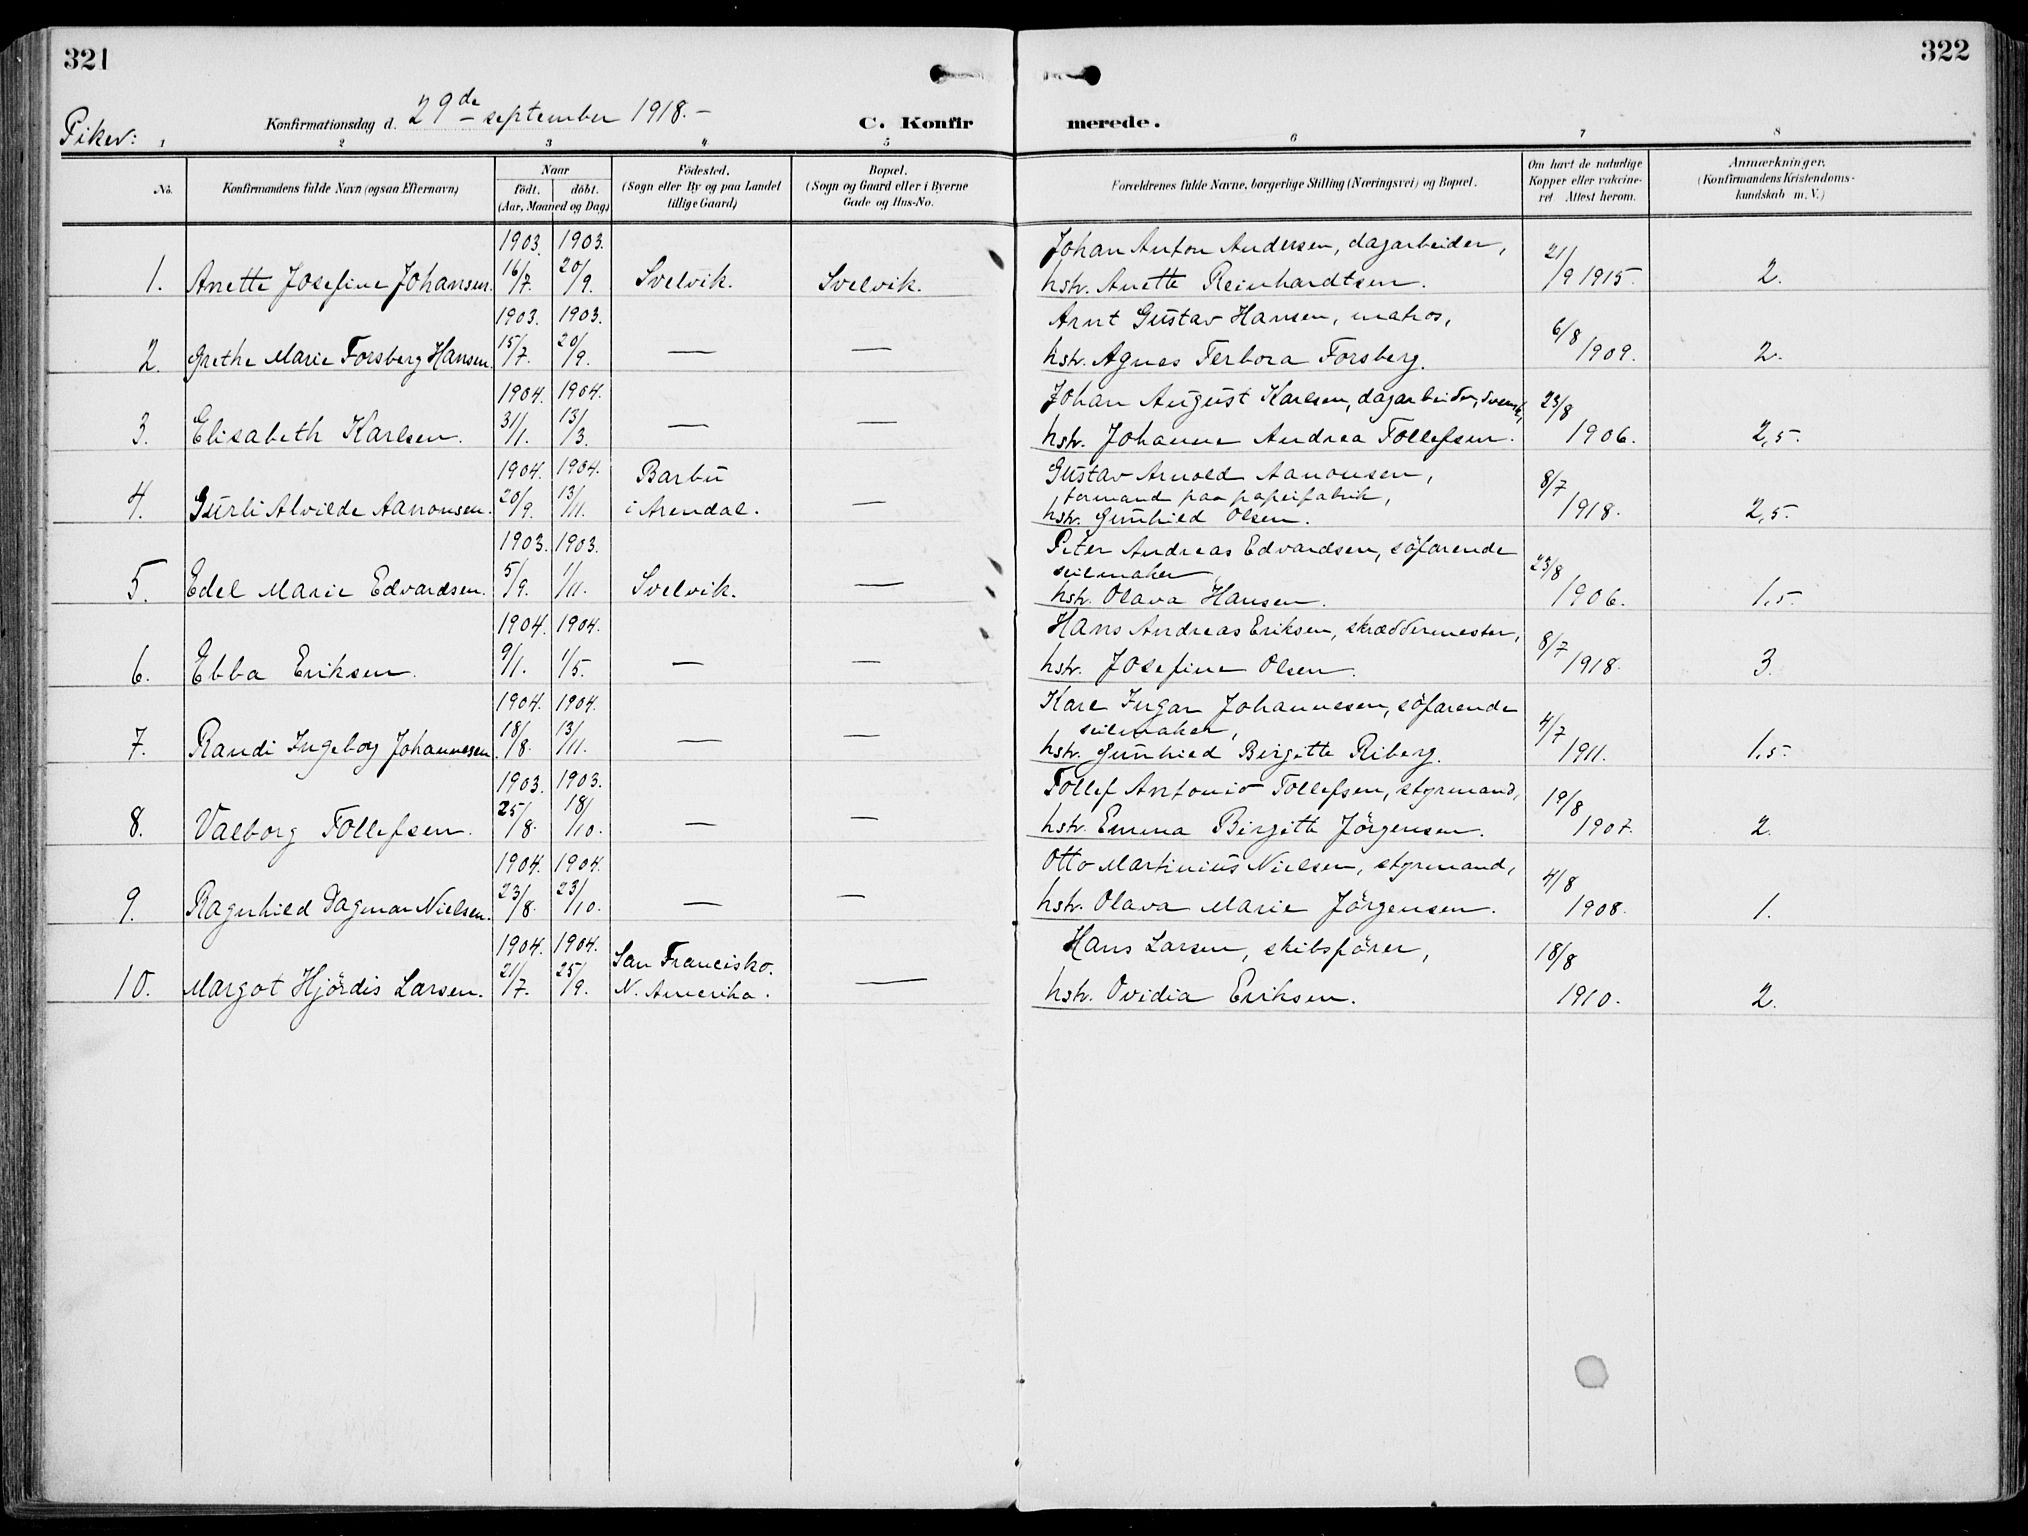 321
322
Piker:
Konfirmationsdag d. 29de september 1918.-
C. Konfir
merede.
1 2 3 4 5 6 7 8
No.
Konfirmandens fulde Navn (ogsaa Efternavn)
Naar
födt. döbt.
(Aar, Maaned og Dag)
Födested.
(Sogn eller By og paa Landet
tillige Gaard)
Bopæl.
(Sogn og Gaard eller i Byerne
Gade og Hus-No.
Forældrenes fulde Navne, borgerlige Stilling (Næringsvei) og Bopæl.
Om havt de naturlige
Kopper eller vakcine-
ret. Attest herom.
Anmærkninger.
(Konfirmandens Kristendoms-
kundskab m. V.)
1903. 1903. Johan Anton Andersen, dagarbeider,
1. Anette Josefine Johansen. 16/7. 20/9. Svelvik. Svelvik. hstr. Anette Reinhardtsen. 21/9 1915. 2.
1903. 1903. Arnt Gustav Hansen, matros,
2. Grethe Marie Forsberg Hansen. 15/7. 20/9. — — hstr. Agnes Terbora Forsberg. 6/8 1909. 2.
1904. 1904. Johan August Karlsen, dagarbeider, svensk,
3. Elisabeth Karlsen. 31/1. 13/3. — — hstr. Johanne Andrea Tollefsen. 23/8 1906. 2,5.
1904. 1904. Barbu Gustav Arnold Aanonsen,
formand paa papirfabrik,
4. Gurli Alvilde Aanonsen. 20/9. 13/11. i Arendal. — hstr. Gunhild Olsen. 8/7 1918. 2,5.
1903. 1903. Peter Andreas Edvardsen, söfarende
seilmaker,
5. Edel Marie Edvardsen. 5/9. 1/11. Svelvik. — hstr. Olava Hansen. 23/8 1906. 1,5.
1904. 1904. Hans Andreas Eriksen, skræddermester,
6. Ebba Eriksen. 9/1. 1/5. — — hstr. Josefine Olsen. 8/7 1918. 3.
1904. 1904. Karl Ingar Johannesen, söfarende
seilmaker,
7. Randi Ingeborg Johannesen. 18/8. 13/11. — — hstr. Gunhild Birgitte Riberg. 4/7 1911. 1,5.
1903. 1903. Tollef Antonio Tollefsen, styrmand,
8. Valborg Tollefsen. 25/8. 18/10. — — hstr. Emma Birgith Jörgensen. 19/8 1907. 2.
1904. 1904. Otto Martinius Nielsen, styrmand,
9. Ragnhild Dagmar Nielsen. 23/8. 23/10. — — hstr. Olava Marie Jörgensen. 4/8 1908. 1.
1904. 1904. San Francisko. Hans Larsen, skibsförer,
10. Margot Hjördis Larsen. 21/7. 25/9. N. Amerika. — hstr. Ovidia Eriksen. 18/8 1910. 2.